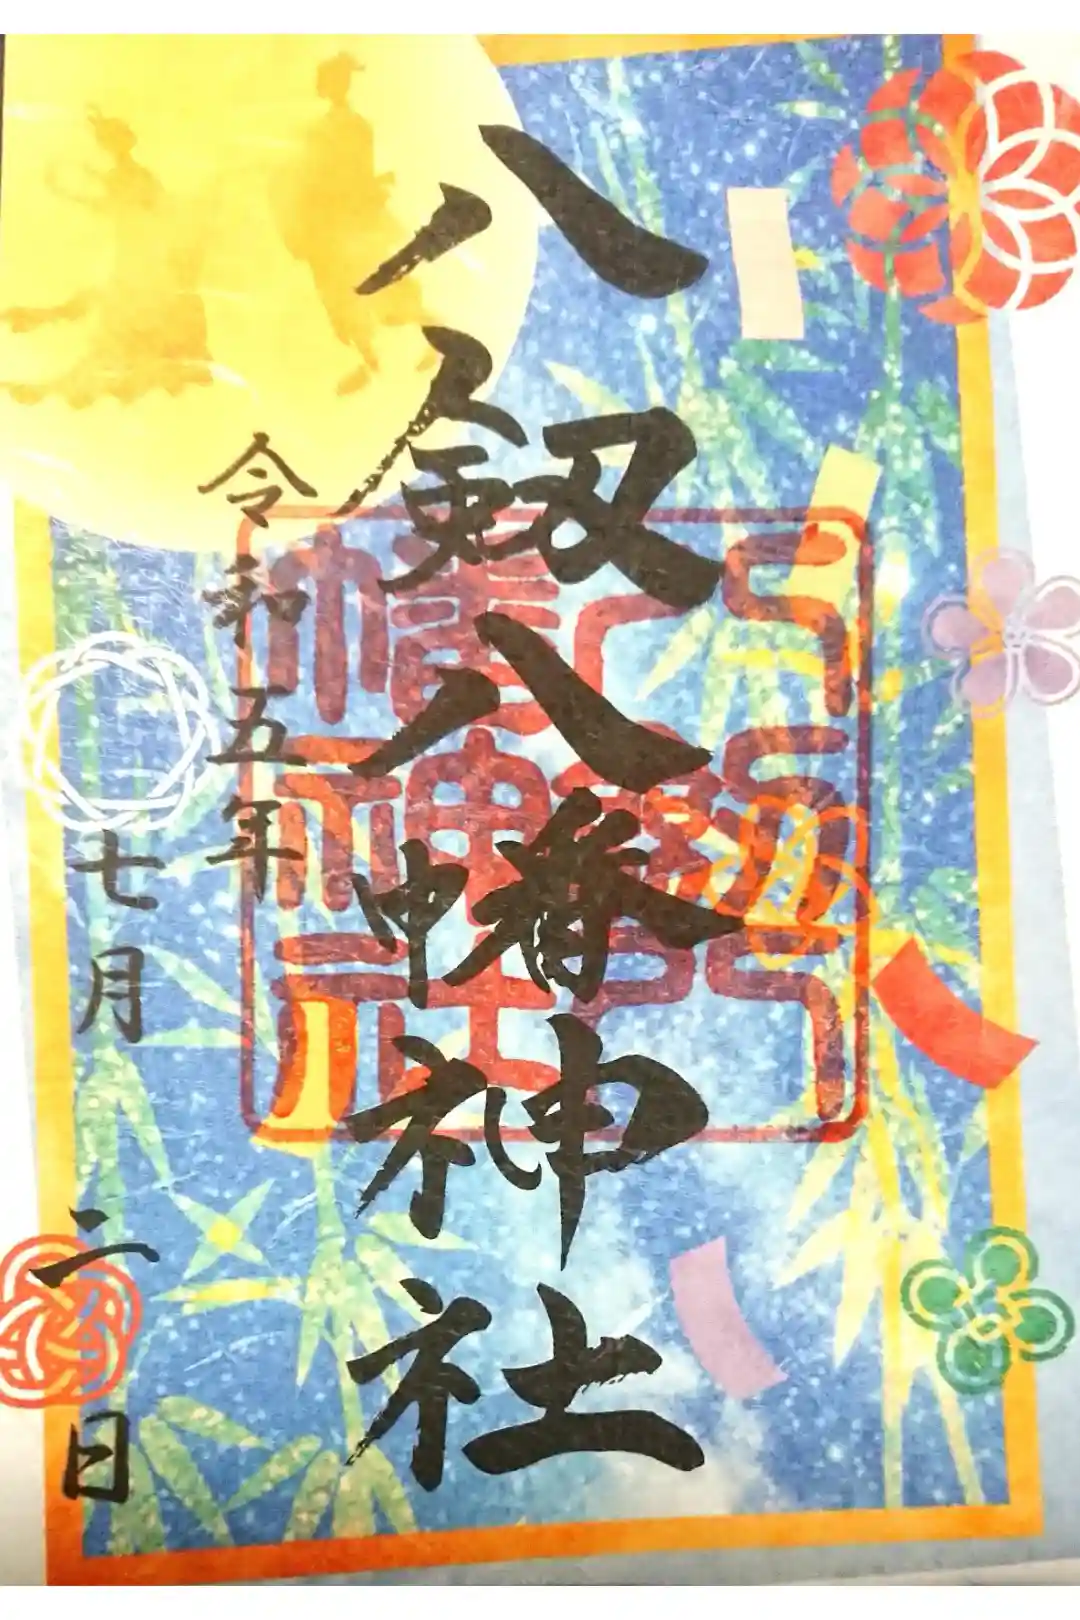 八劔八幡神社
令和五年
七月二日
八剱八
幡神社